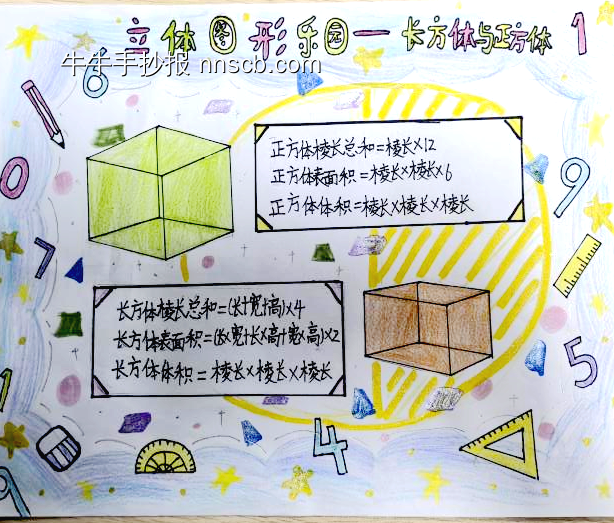 立体图形乐园一长方体与正方体
牛牛手抄报 nnscb.com
正方体棱长总和=棱长×12
正方体表面积=棱长×棱长×6
正方体体积=棱长×棱长×棱长
长方体棱长总和=(长+宽+高)×4
长方体表面积=(长×宽+长×高+宽×高)×2
长方体体积=棱长×棱长×棱长
1
6
0
9
7
5
1
4
9